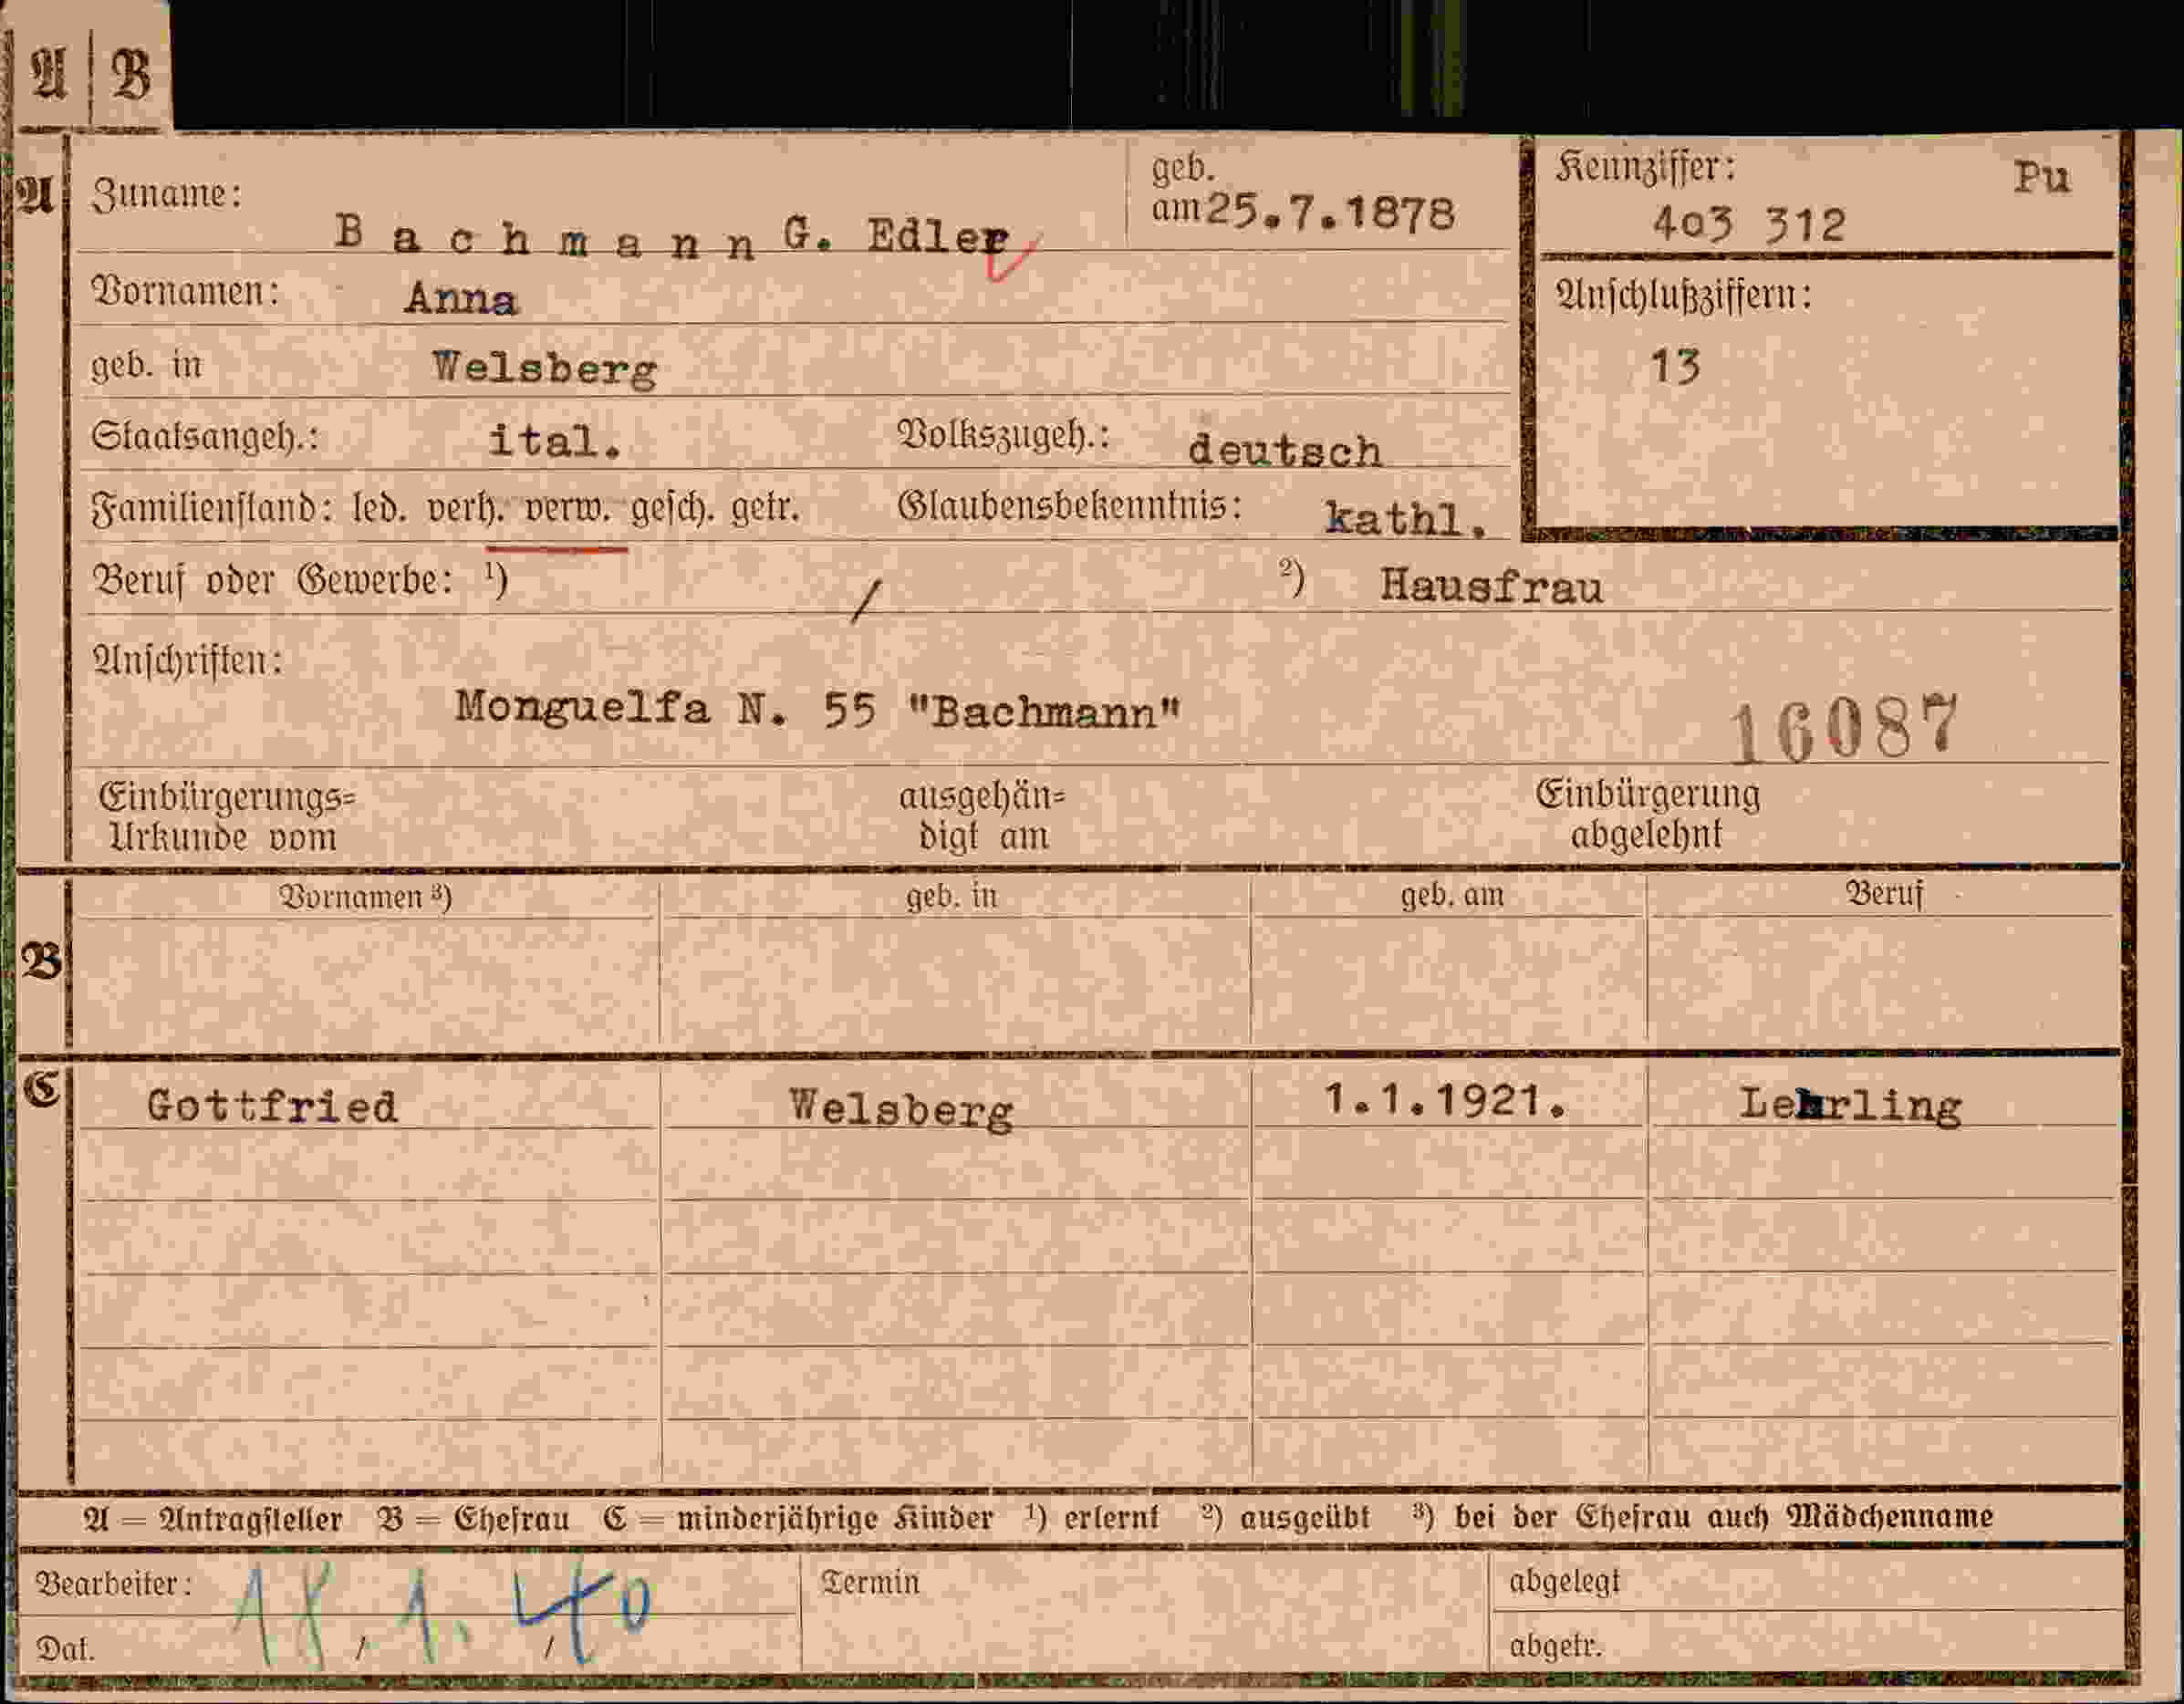 A | B
A
Zuname: B a c h m a n n G. Edler
geb. am 25.7.1878
Kennziffer: Pu
403 312
Vornamen: Anna
Anschlußziffern:
13
geb. in Welsberg
Staatsangeh.: ital. Volkszugeh.: deutsch
Familienstand: led. verh. verw. gesch. getr. Glaubensbekenntnis: kathl.
Beruf oder Gewerbe: ¹) / ²) Hausfrau
Anschriften:
Monguelfa N. 55 "Bachmann"
16087
Einbürgerungs=
Urkunde vom
ausgehän=
digt am
Einbürgerung
abgelehnt
B
Vornamen ³) geb. in geb. am Beruf
C
Gottfried Welsberg 1.1.1921. Lehrling
A = Antragsteller B = Ehefrau C = minderjährige Kinder ¹) erlernt ²) ausgeübt ³) bei der Ehefrau auch Mädchenname
Bearbeiter: Termin abgelegt
18.1.40
Dat. abgetr.